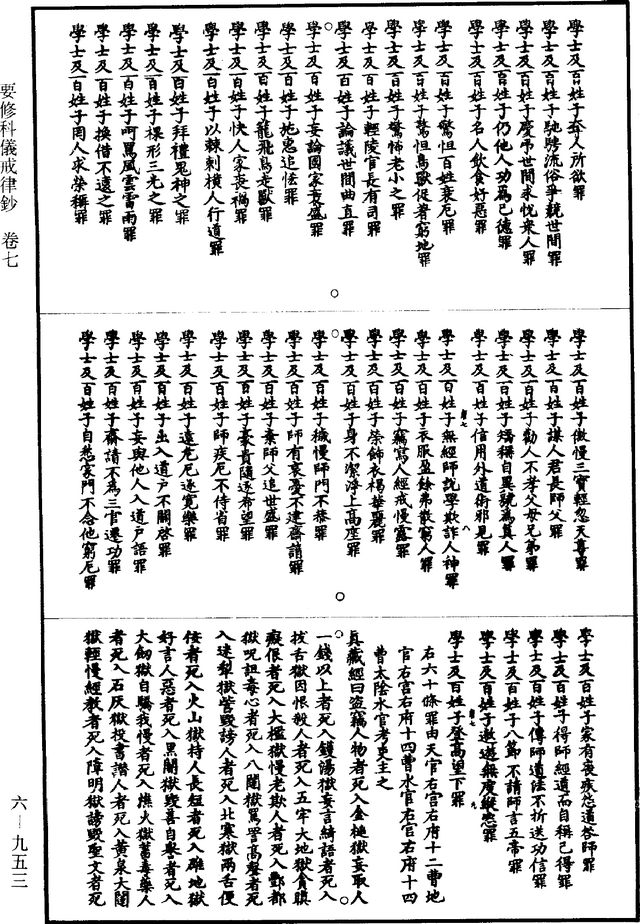 學士及百姓子奪人所欲罪
學士及百姓子馳騁流俗爭競世間罪
學士及百姓子慶弔世間求悅衆人罪
學士及百姓子仍他人功爲已德罪
學士及百姓子名人飲食好惡罪
學士及百姓子驚怛百姓衰厄罪
學士及百姓子驚怛鳥獸促着窮地罪
學士及百姓子驚怖老小之罪
學士及百姓子輕陵官長有司罪
學士及百姓子論議世間曲直罪
學士及百姓子妄論國家衰盛罪
學士及百姓子地恚追怯罪
學士及百姓子籠飛鳥走獸罪
學士及百姓子快人家喪禍罪
學士及百姓子以棘刺橫人行道罪
學士及百姓子拜禮鬼神之罪
學士及百姓子裸形三光之罪
學士及百姓子呵罵風雲雷雨罪
學士及百姓子換借不還之罪
學士及百姓子罔人求榮稱罪
學士及百姓子傲慢三寶輕忽天尊罪
學士及百姓子讓人君長師父罪
學士及百姓子勸人不孝父母兄弟罪
學士及百姓子矯稱自異號爲真人罪
學士及百姓子信用外道術邪見罪
學士及百姓子無經師說學欺詐人神罪
學士及百姓子衣服盈餘弗散窮人罪
學士及百姓子竊寫人經戒慢露罪
學士及百姓子榮飾衣褐華麗罪
學士及百姓子身不潔淨上高座罪
學士及百姓子穢慢師門不恭罪
學士及百姓子師有哀憂不建齋請罪
學士及百姓子棄師父追世盛罪
學士及百姓子豪貴隨逐希望罪
學士及百姓子師疾厄不侍省罪
學士及百姓子遠危厄逐寬樂罪
學士及百姓子出入道戶不關啓罪
學士及百姓子妄與他人入道戶語罪
學士及百姓子齋請不爲三官遷功罪
學士及百姓子自愁家門不念他窮厄罪
學士及百姓子家有喪疾怨道咎師罪
學士及百姓子得師經道而自稱已得罪
學士及百姓子傳師道法不折送功信罪
學士及百姓子八節不請師言五帝罪
學士及百姓子遨遊無度縱恣罪
學士及百姓子登高望下罪
右六十條罪由天官右宫右府十二曹地
官右宫右府十四曹水官右官右府十四
曹太陰水官考吏主之
真藏經曰盜竊人物者死入金槌獄妄取人
一錢以上者死入鑊湯獄妄言綺語者死入
拔舌獄因恨殺人者死入五牢大地獄貪瞋
癡佷者死入大檻獄慢老欺人者死入酆都
獄呪詛毒心者死入八閣獄罵詈高聲者死
入迷犁獄訾毀謗人者死入北寒獄兩舌便
佞者死入火山獄持人長短者死入碓地獄
好言人惡者死入黑闇獄毀善自譽者死入
大劒獄自驕我慢者死入燋火獄蓄毒藥人
者死入石灰獄投書譖人者死入黃泉大闇
獄輕慢經教者死入障明獄誹毀聖文者死
要修科儀戒律鈔 卷七
六－九五三